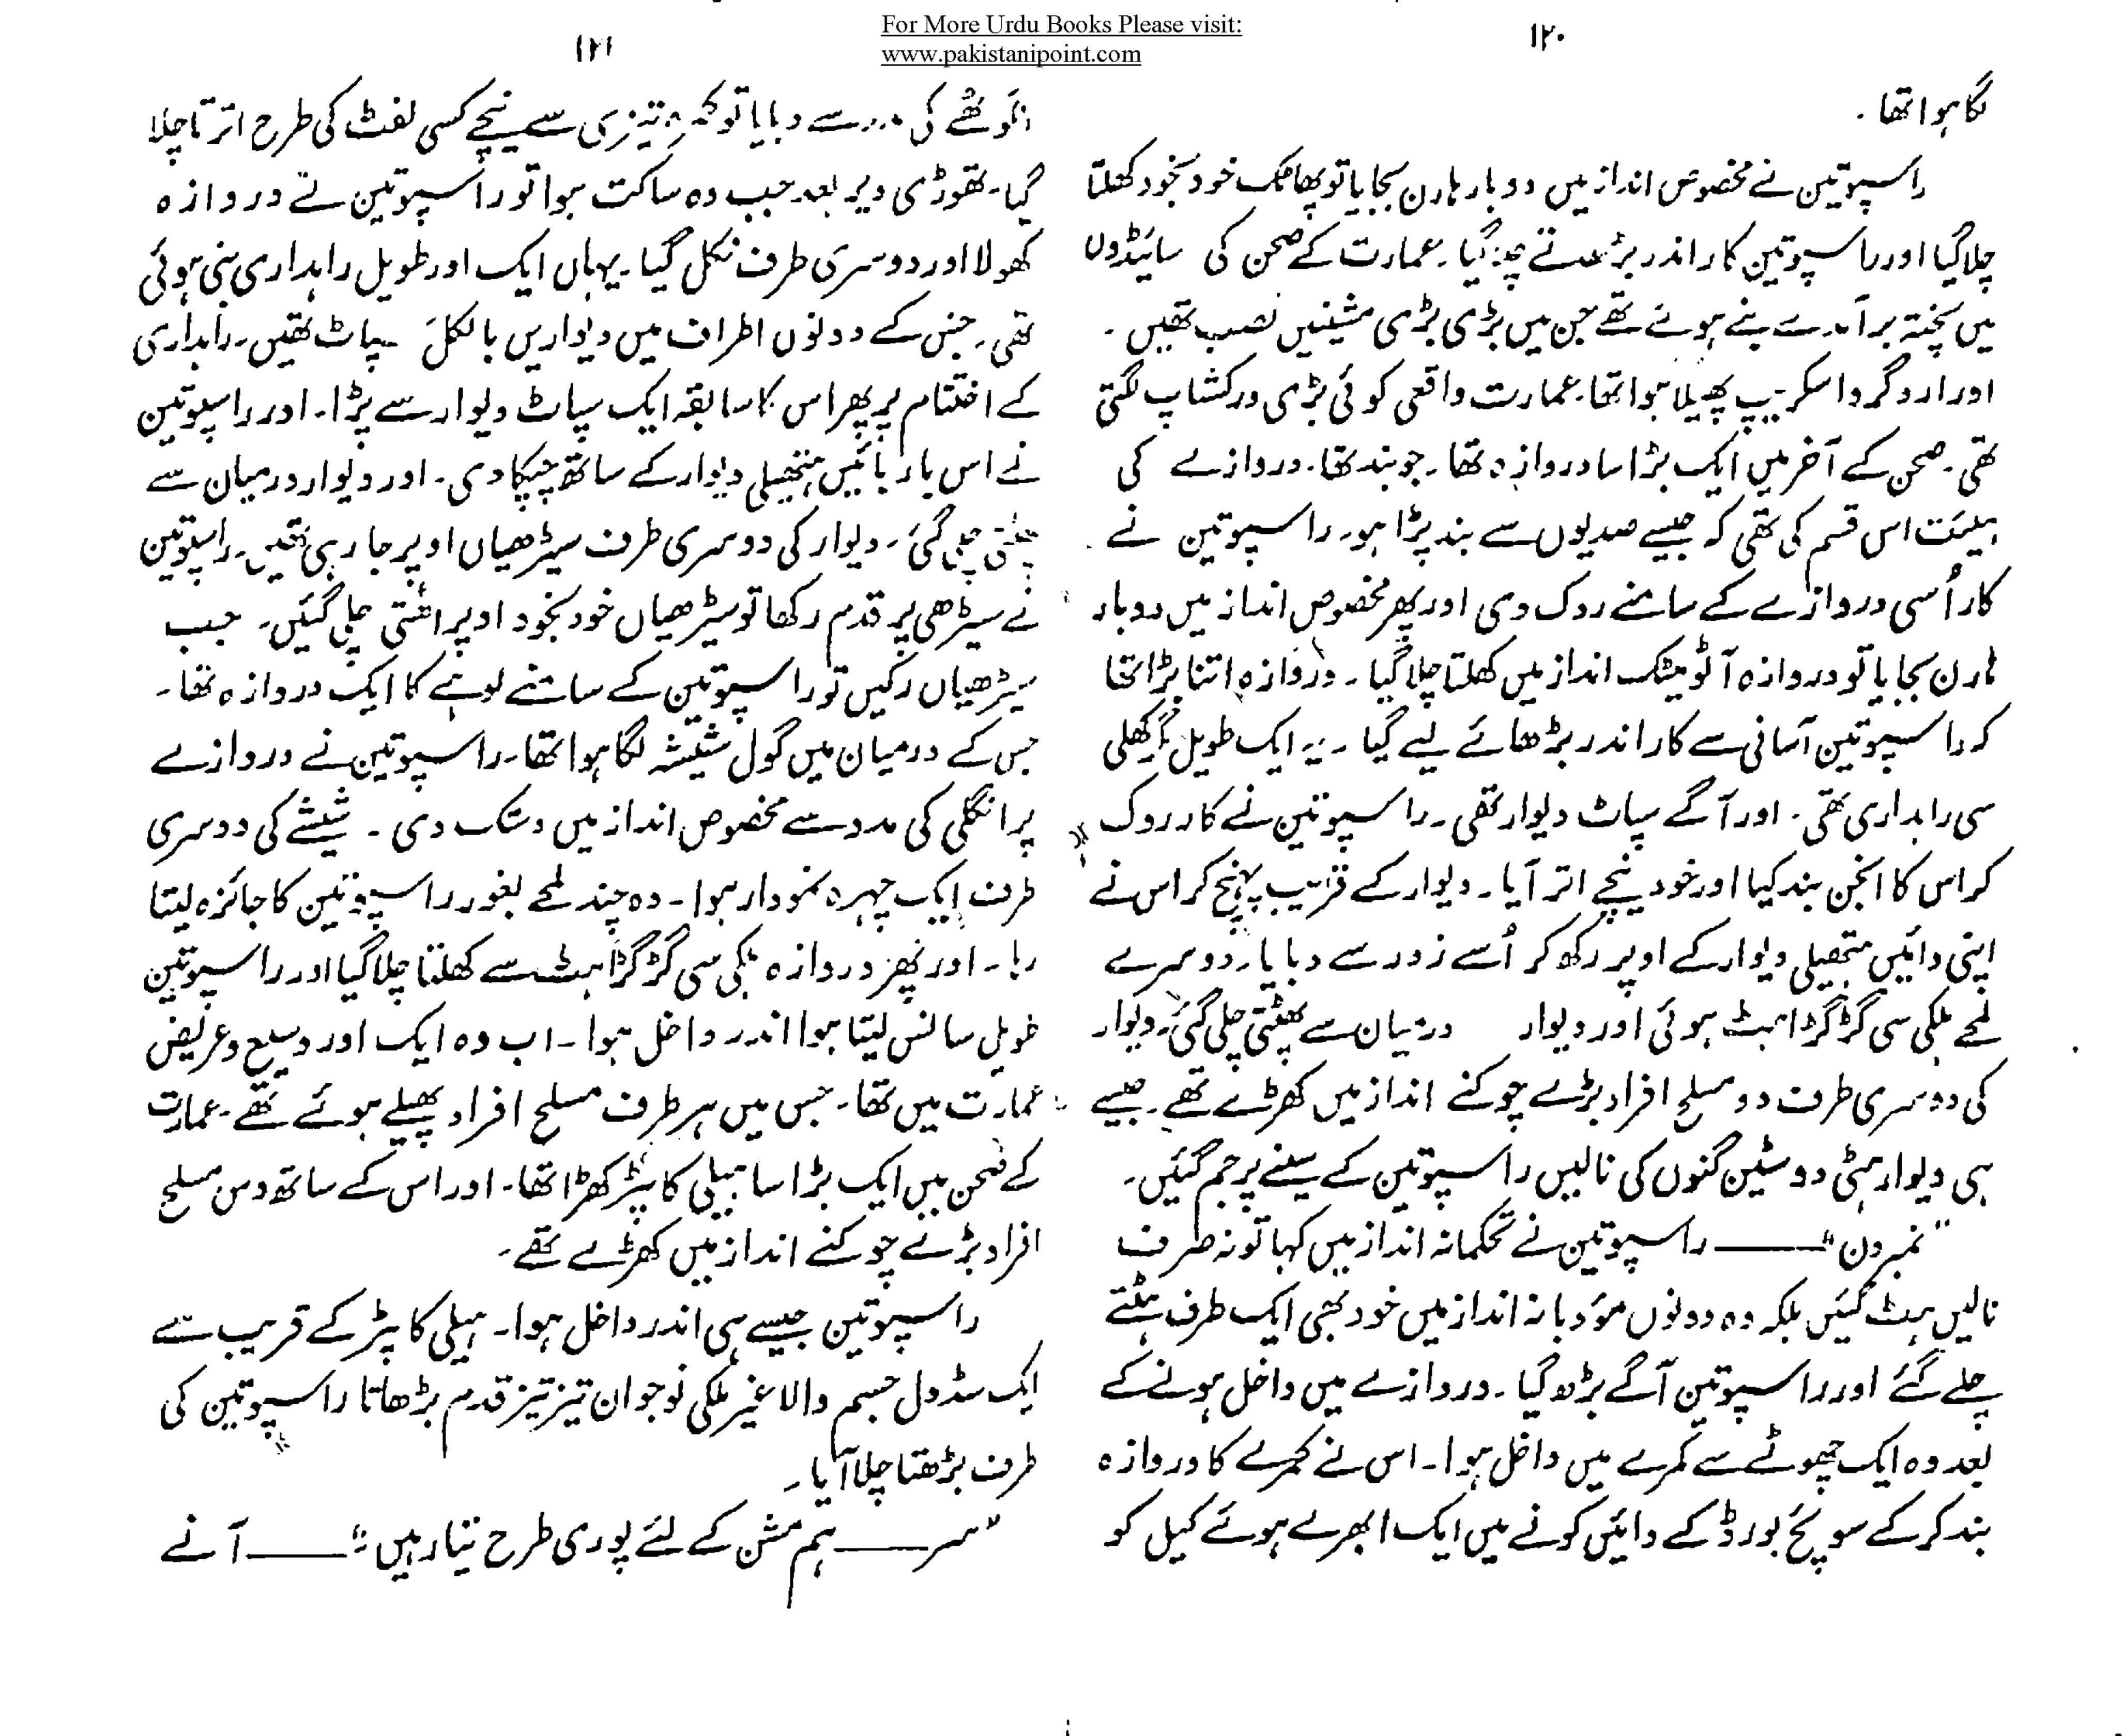 For More Urdu Books Please visit:
www.pakistanipoint.com
۱۲۰
لگا ہوا تھا۔
راسپوتین نے مخصوص انداز میں دو بار ہارن بجایا تو پھاٹک خود بخود کھلتا
چلا گیا اور راسپوتین کار اندر بڑھاتے چلا گیا۔ عمارت کے صحن کی سائیڈوں
میں پختہ برآمدے بنے ہوئے تھے جن میں بڑی بڑی مشینیں نصب تھیں۔
اور ارد گرد اسکریپ پھیلا ہوا تھا۔ عمارت واقعی کوئی بڑی ورکشاپ لگتی
تھی۔ صحن کے آخر میں ایک بڑا سا دروازہ تھا۔ جو بند تھا۔ دروازے کی
ہیئت اس قسم کی تھی کہ جیسے صدیوں سے بند پڑا ہو۔ راسپوتین نے
کار اُسی دروازے کے سامنے روک دی اور پھر مخصوص انداز میں دو بار
ہارن بجایا تو دروازہ آٹومیٹک انداز میں کھلتا چلا گیا۔ دروازہ اتنا بڑا تھا
کہ راسپوتین آسانی سے کار اندر بڑھائے لیے گیا۔ یہ ایک طویل مگر کھلی
سی راہداری تھی۔ اور آگے سپاٹ دیوار تھی۔ راسپوتین نے کار روک
کر اس کا انجن بند کیا اور خود نیچے اتر آیا۔ دیوار کے قریب پہنچ کر اس نے
اپنی دائیں ہتھیلی دیوار کے اوپر رکھ کر اُسے زور سے دبایا۔ دوسرے
لمحے ہلکی سی گڑگڑاہٹ ہوئی اور دیوار درمیان سے پھٹتی چلی گئی۔ دیوار
کی دوسری طرف دو مسلح افراد بڑے چوکنے انداز میں کھڑے تھے۔ جیسے
ہی دیوار ہٹی دو سٹین گنوں کی نالیں راسپوتین کے سینے پر جم گئیں۔
"نمبر ون" ——— راسپوتین نے تحکمانہ انداز میں کہا تو نہ صرف
نالیں ہٹ گئیں بلکہ وہ دونوں مؤدبانہ انداز میں خود بھی ایک طرف ہٹتے
چلے گئے اور راسپوتین آگے بڑھ گیا۔ دروازے میں داخل ہونے کے
بعد وہ ایک چھوٹے سے کمرے میں داخل ہوا۔ اس نے کمرے کا دروازہ
بند کر کے سوئچ بورڈ کے دائیں کونے میں ایک ابھرے ہوئے کیل کو
۱۲۱
انگوٹھے کی مدد سے دبایا تو کمرہ تیزی سے نیچے کسی لفٹ کی طرح اترتا چلا
گیا۔ تھوڑی دیر بعد جب وہ ساکت ہوا تو راسپوتین نے دروازہ
کھولا اور دوسری طرف نکل گیا۔ یہاں ایک اور طویل راہداری بنی ہوئی
تھی۔ جس کے دونوں اطراف میں دیواریں بالکل سپاٹ تھیں۔ راہداری
کے اختتام پر پھر اس کا سابقہ ایک سپاٹ دیوار سے پڑا۔ اور راسپوتین
نے اس بار بائیں ہتھیلی دیوار کے ساتھ چپکا دی۔ اور دیوار درمیان سے
پھٹتی چلی گئی۔ دیوار کی دوسری طرف سیڑھیاں اوپر جا رہی تھیں۔ راسپوتین
نے سیڑھی پر قدم رکھا تو سیڑھیاں خود بخود اوپر اٹھتی چلی گئیں۔ جب
سیڑھیاں رکیں تو راسپوتین کے سامنے لوہے کا ایک دروازہ تھا۔
جس کے درمیان میں گول شیشہ لگا ہوا تھا۔ راسپوتین نے دروازے
پر انگلی کی مدد سے مخصوص انداز میں دستک دی۔ شیشے کی دوسری
طرف ایک چہرہ نمودار ہوا۔ وہ چند لمحے بغور راسپوتین کا جائزہ لیتا
رہا۔ اور پھر دروازہ ہلکی سی گڑگڑاہٹ سے کھلتا چلا گیا اور راسپوتین
طویل سانس لیتا ہوا اندر داخل ہوا۔ اب وہ ایک اور وسیع و عریض
عمارت میں تھا۔ جس میں ہر طرف مسلح افراد پھیلے ہوئے تھے۔ عمارت
کے صحن میں ایک بڑا سا ہیلی کاپٹر کھڑا تھا۔ اور اس کے ساتھ دس مسلح
افراد بڑے چوکنے انداز میں کھڑے تھے۔
راسپوتین جیسے ہی اندر داخل ہوا۔ ہیلی کاپٹر کے قریب سے
ایک سڈول جسم والا غیر ملکی نوجوان تیز تیز قدم بڑھاتا راسپوتین کی
طرف بڑھتا چلا آیا۔
"سر ——— ہم مشن کے لئے پوری طرح تیار ہیں" ——— آنے